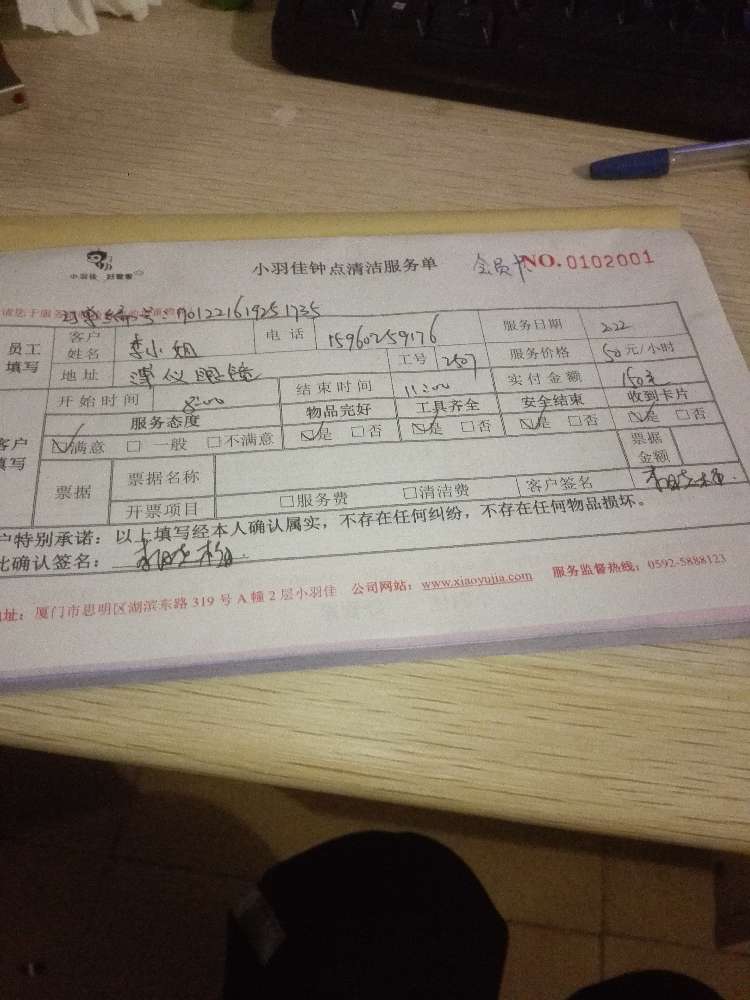 小羽佳 好管家
小羽佳钟点清洁服务单 会员卡 NO.0102001
请您于服务
订单编号:701221619251735
员工填写 客户姓名 李小姐 电话 15960259176 服务日期 2.22
地址 工号 2507 服务价格 50元/小时
客户填写 开始时间 8:00 结束时间 11:00 实付金额 150元
服务态度 物品完好 工具齐全 安全结束 收到卡片
☑满意 □一般 □不满意 ☑是 □否 ☑是 □否 ☑是 □否 ☑是 □否
票据 票据名称 票据金额
开票项目 □服务费 □清洁费 客户签名
户特别承诺:以上填写经本人确认属实,不存在任何纠纷,不存在任何物品损坏。
此确认签名:
地址:厦门市思明区湖滨东路319号A幢2层小羽佳 公司网站:www.xiaoyujia.com 服务监督热线:0592-5888123